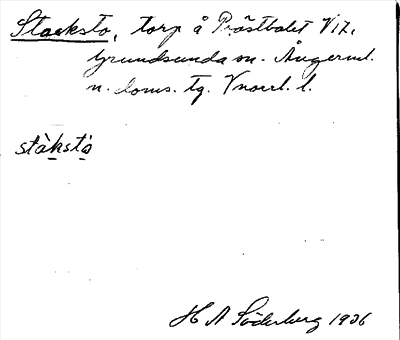 Stacksta, torp å Prästbolet V17,
Grundsunda sn. Ångerml.
n. doms. tg. Vnorrl. l.
stàkstà
H A Söderberg 1936